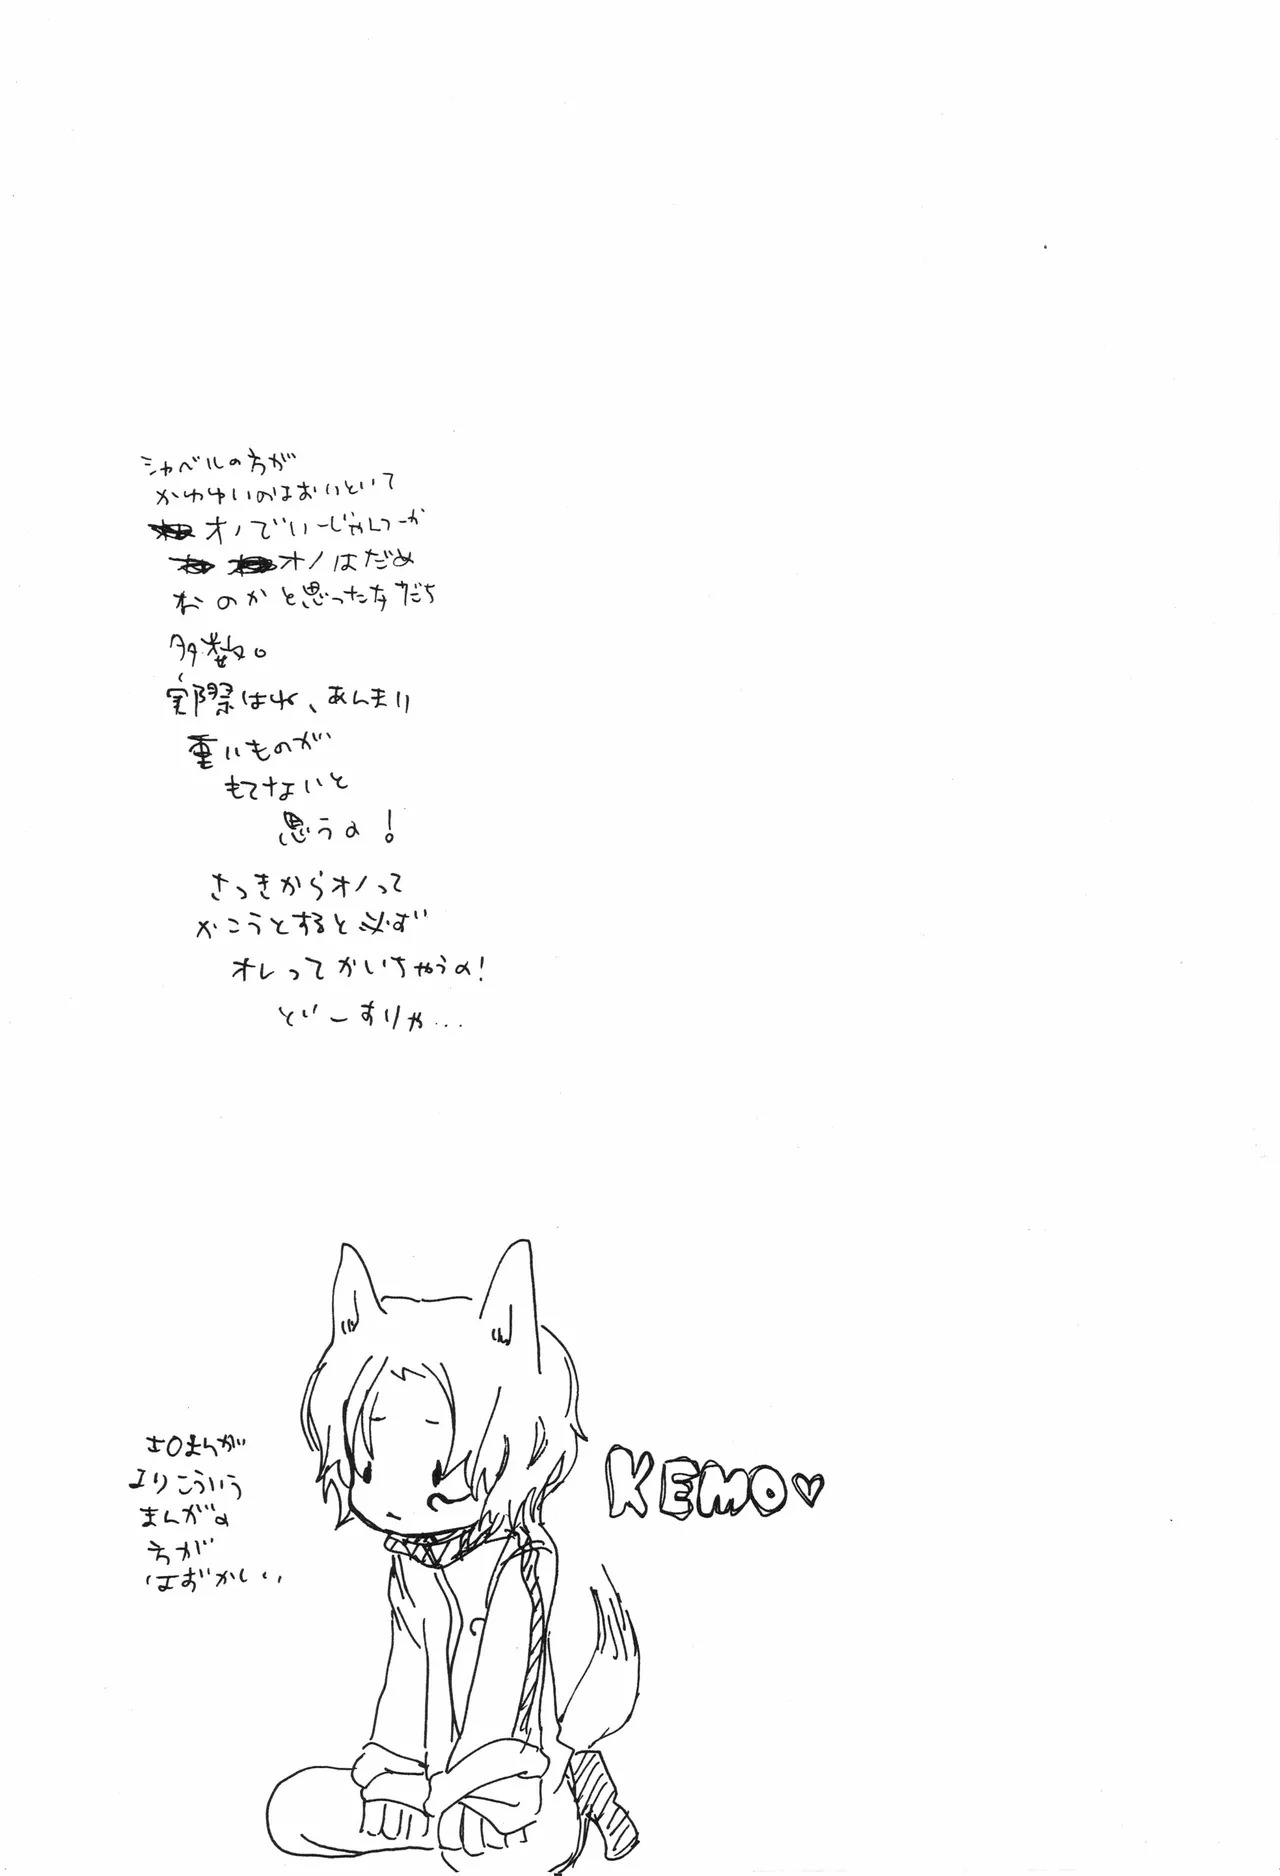 シャベルの方が
かわゆいのはおいといて
オノでいーじゃんつーか
オノはだめ
なのかと思ったオだち
多数。
実際はね、あんまり
重いものが
もてないと
思うの!
さっきからオノって
かこうとすると必ず
オレってかいちゃうの!
どーすりゃ...
エロまんが
よりこういう
まんがの
方が
はずかしい
KEMO♡